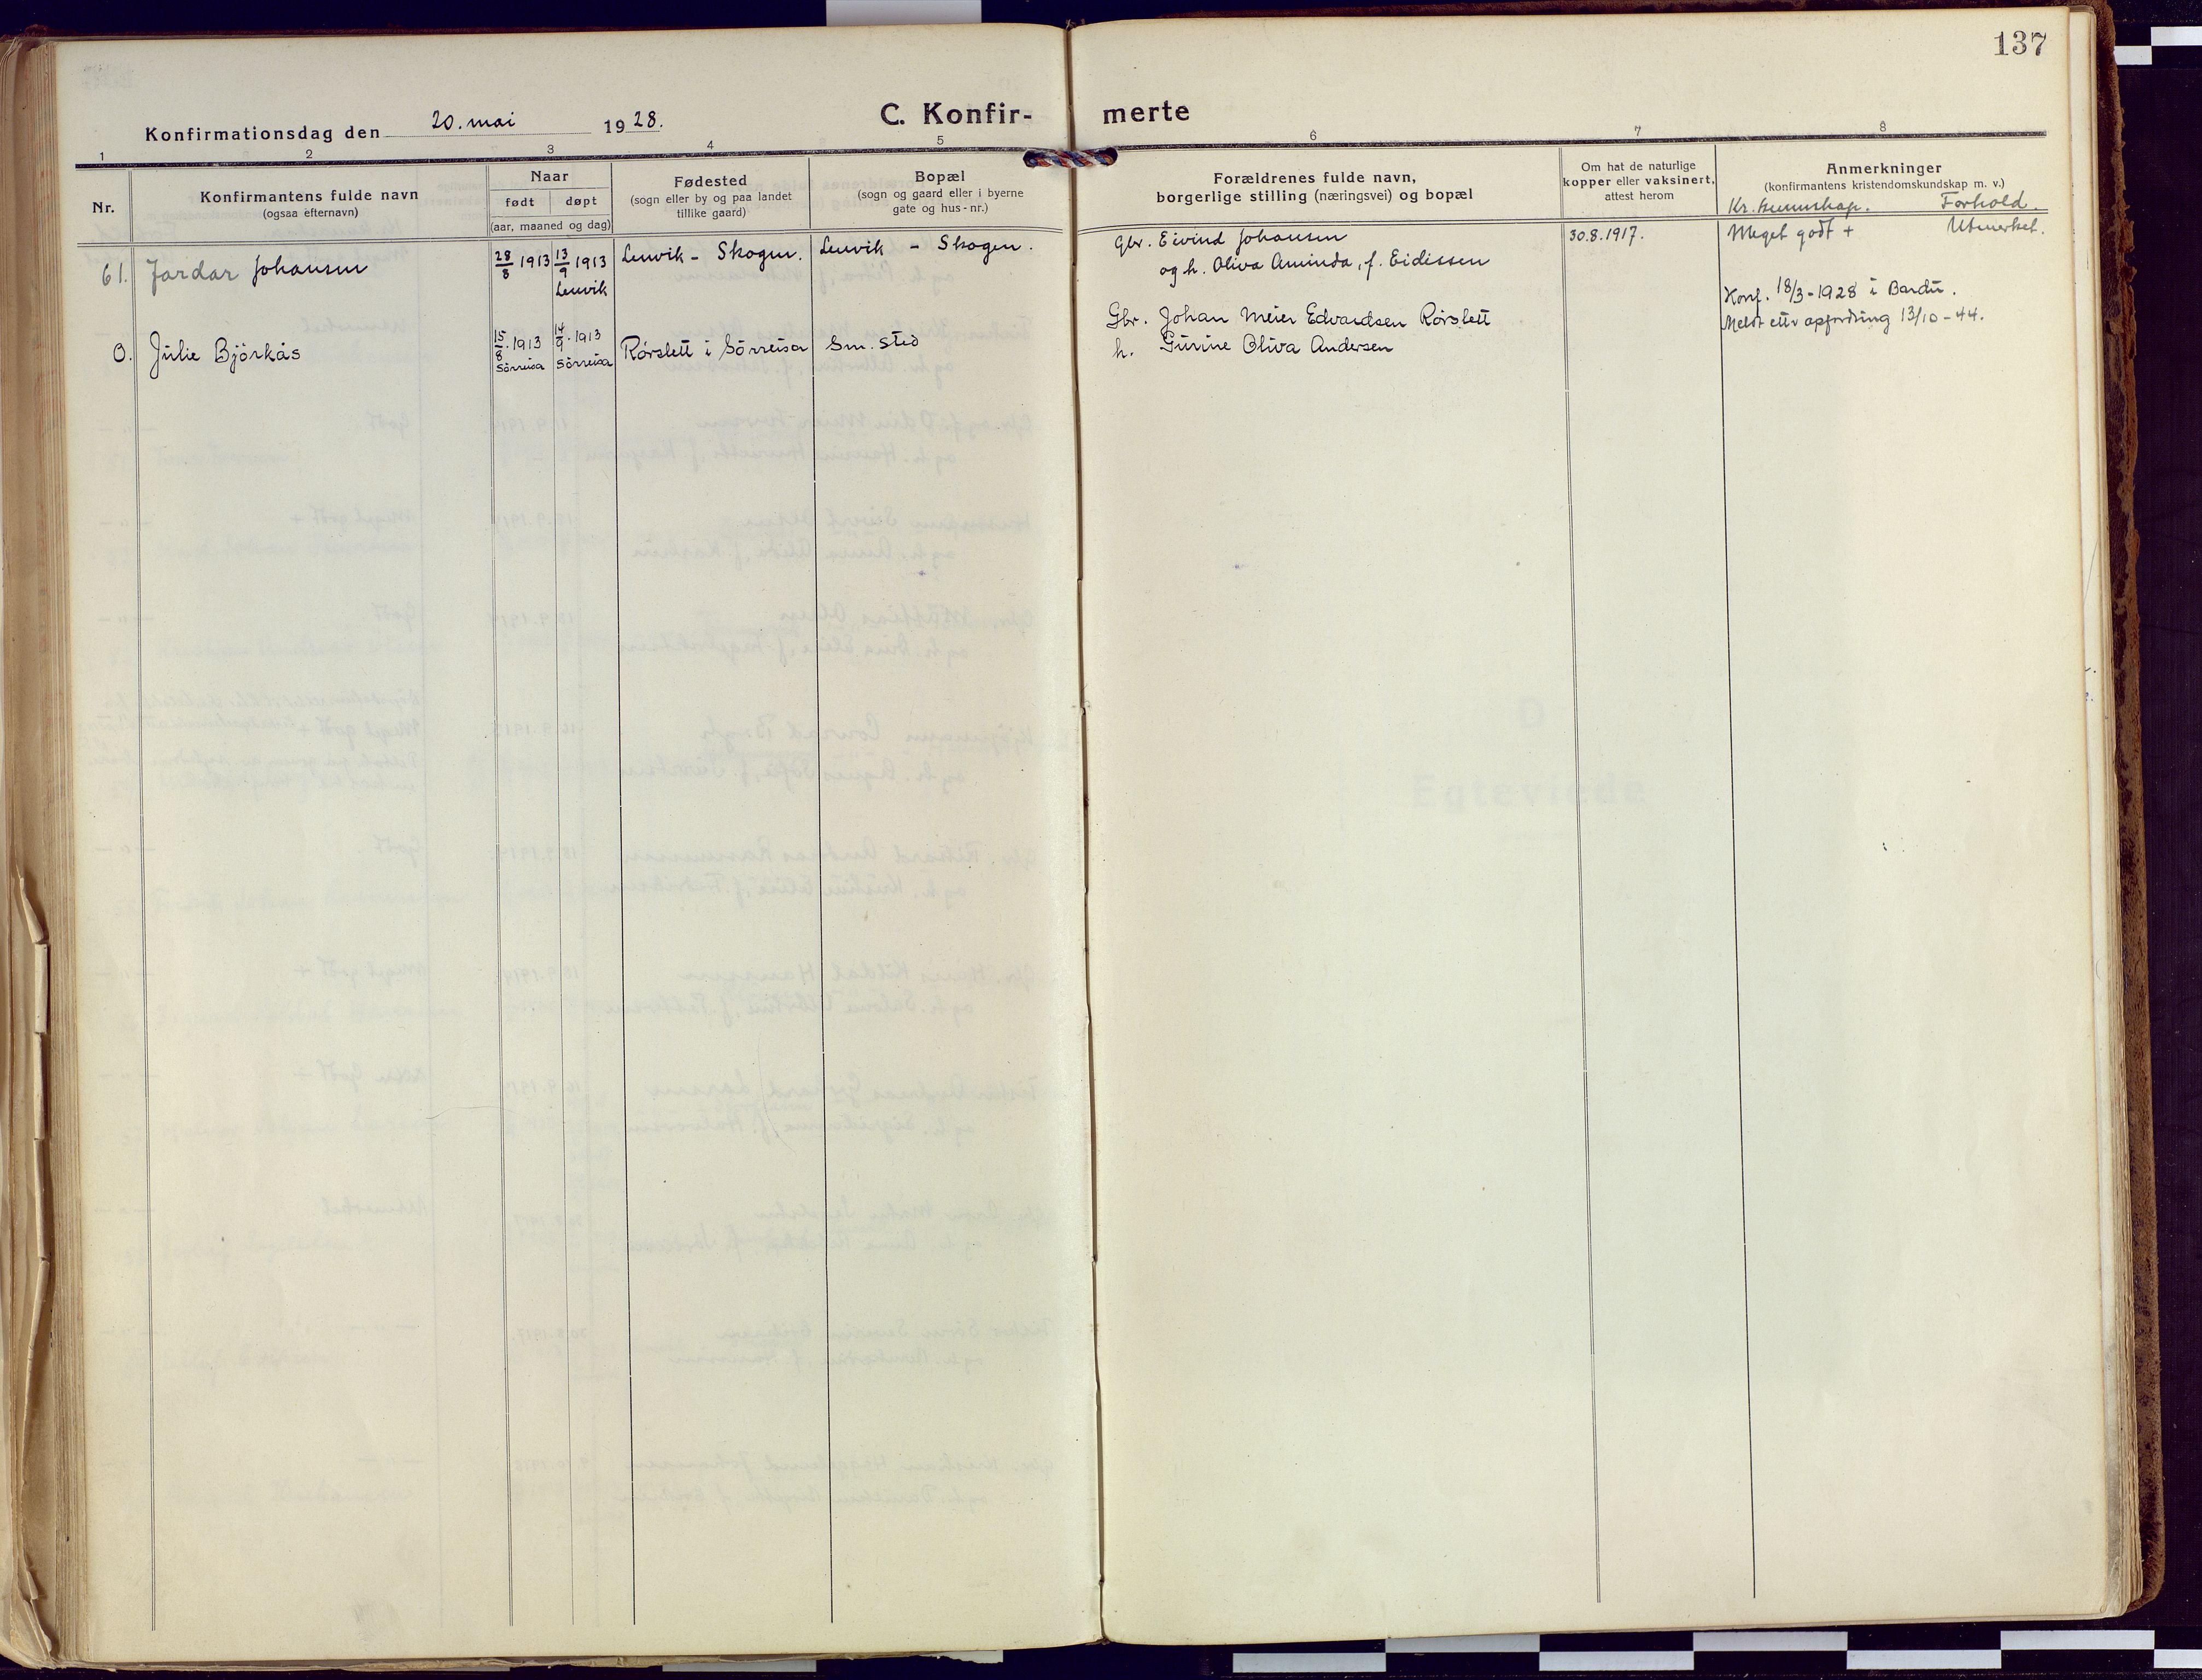 137
Konfirmationsdag den 20. mai 1928.
C. Konfirmerte
1 2 3 4 5 6 7 8
Nr.
Konfirmantens fulde navn
(ogsaa efternavn)
Naar
født døpt
(aar, maaned og dag)
Fødested
(sogn eller by og paa landet
tillike gaard)
Bopæl
(sogn og gaard eller i byerne
gate og hus-nr.)
Forældrenes fulde navn,
borgerlige stilling (næringsvei) og bopæl
Om hat de naturlige
kopper eller vaksinert,
attest herom
Anmerkninger
(konfirmantens kristendomskundskap m. v.)
Kr. kunnskap. Forhold.
61. Jardar Johansen
28/8 1913
13/9 1913
Lenvik
Lenvik - Skogen.
Lenvik - Skogen.
Gbr. Eivind Johansen
og h. Oliva Aminda, f. Eidissen
30.8.1917.
Meget godt + Utmerket.
0. Julie Björkås
15/8 1913
Sörreisa
14/9 1913
Sörreisa
Rörslett i Sörreisa
Sm. sted
Gbr. Johan Meier Edvardsen Rörslett
h. Gurine Oliva Andersen
Konf. 18/3-1928 i Bardu.
Meldt ettr opfordring 13/10-44.